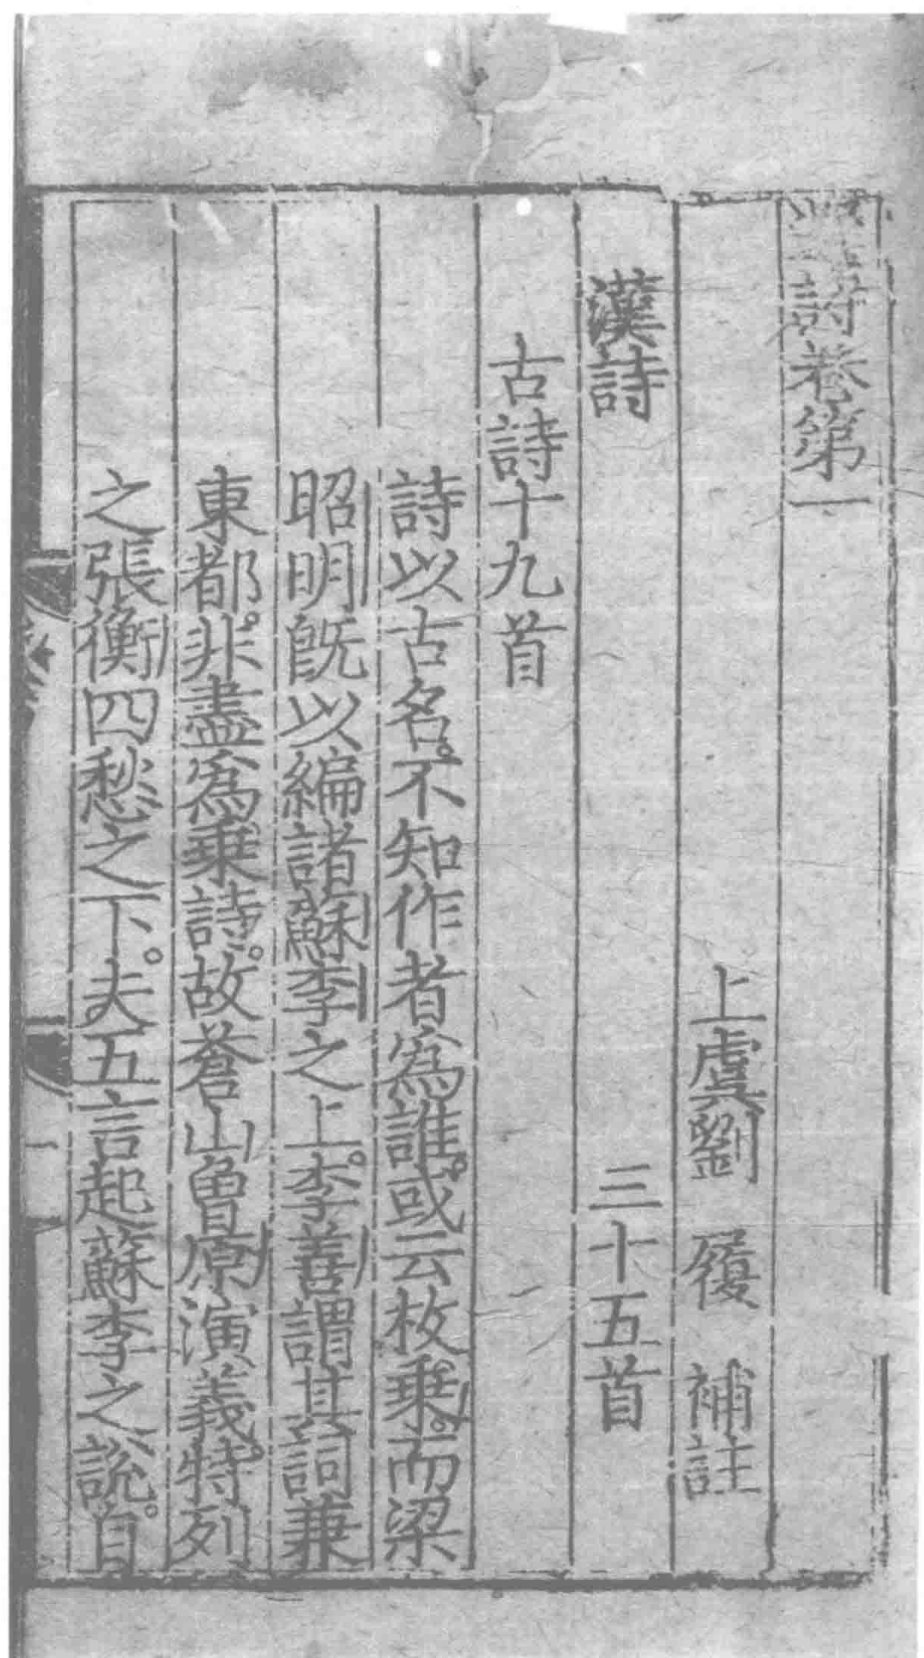 詩卷第一
上虞劉 履 補註
漢詩 三十五首
古詩十九首
詩以古名。不知作者爲誰。或云枚乘。而梁
昭明旣以編諸蘇李之上。李善謂其詞兼
東都。非盡爲乗詩。故蒼山曾原演義。特列
之張衡四愁之下。夫五言起蘇李之說。自